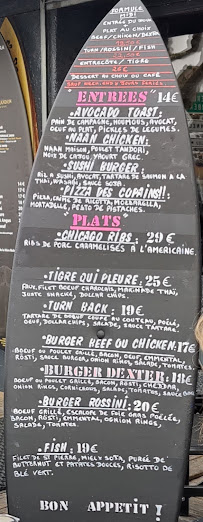 FORMULE
MIDI
ENTRÉE DU JOUR
PLAT AU CHOIX
BEEF/CHICKEN/DEXTER
TURN/ROSSINI/FISH
ENTRECÔTE/TIGRE
25€
DESSERT AU CHOIX OU CAFÉ
"ENTREES" 14€
.AVOCADO TOAST:
PAIN DE CAMPAGNE, HOUMOUS, AVOCAT,
OEUF AU PLAT, PICKLES DE LEGUMES.
.NAAN CHICKEN:
NAAN MAISON, POULET TANDOORI,
NOIX DE CAJOU, YAOURT GREC.
.SUSHI BURGER:
RIZ A SUSHI, AVOCAT, TARTARE DE SAUMON A LA
THAÏ, WASABI, SAUCE SOJA.
PIZZA DES COPAINS!!
PIZZA, CRÈME DE RICOTTA, MOZZARELLA,
MORTADELLE, PESTO DE PISTACHES.
"PLATS"
.CHICAGO RIBS: 29€
RIBS DE PORC CARAMELISES A L'AMERICAINE.
.TIGRE QUI PLEURE: 25€
FAUX FILET BOEUF CHAROLAIS, MARINADE THAÏ,
JUSTE SNACKÉ, DOLLAR CHIPS.
.TURN BACK: 19€
TARTARE DE BOEUF COUPÉ AU COUTEAU, POÊLÉ,
OEUF, DOLLAR CHIPS, SALADE, SAUCE TARTARE.
.BURGER BEEF OU CHICKEN: 17€
BOEUF OU POULET GRILLÉ, BACON, OEUF, EMMENTAL,
RÖSTI, SAUCE BURGER, ONION RINGS, SALADE, TOMATES.
.BURGER DEXTER: 18€
BOEUF OU POULET GRILLÉ, BACON, RÖSTI, CHEDDAR,
ONION RINGS, CORNICHONS, SALADE, TOMATES, SAUCE
.BURGER ROSSINI: 20€
BOEUF GRILLÉ, ESCALOPE DE FOIE GRAS POÊLÉE,
BACON, RÖSTI, EMMENTAL, ONION RINGS,
SALADE, TOMATES.
.FISH: 19€
FILET DE ST PIERRE, MIEL & SOJA, PURÉE DE
BUTTERNUT ET PATATES DOUCES, RISOTTO DE
BLÉ VERT.
BON APPETIT!